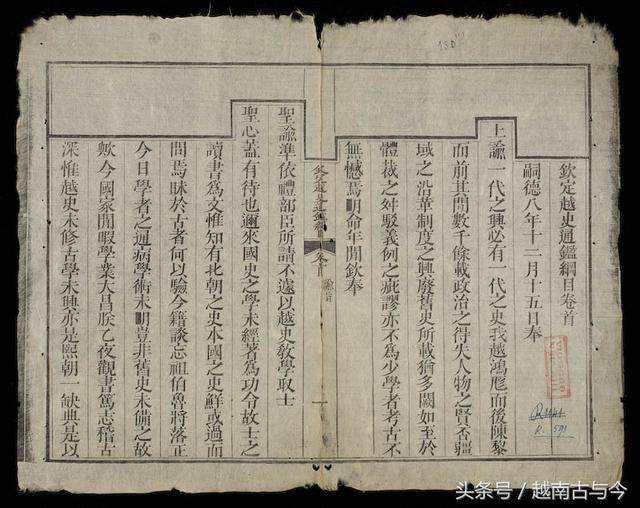 欽定越史通鑑綱目卷首
嗣德八年十二月十五日奉
上諭一代之興必有一代之史我越鴻厖而後陳黎
而前其間數千餘載政治之得失人物之賢否疆
域之沿革制度之興廢舊史所載猶多闕如至於
體裁之舛駁義例之疵謬亦不為少學者考古不
無憾焉明命年間欽奉
聖諭準依禮部臣所請不遽以越史敎學取士
聖心蓋有待也邇來國史之學未經著為功令故士之
讀書為文惟知有北朝之史本國之史鮮或過而
問焉昧於古者何以驗今籍談忘祖伯魯將落正
今日學者之通病學術未明豈非舊史未備之故
歟今國家閒暇學業大昌朕乙夜觀書篤志稽古
深惟越史未修古學未興亦是熙朝一缺典是以
R. 591
头条号／越南古与今